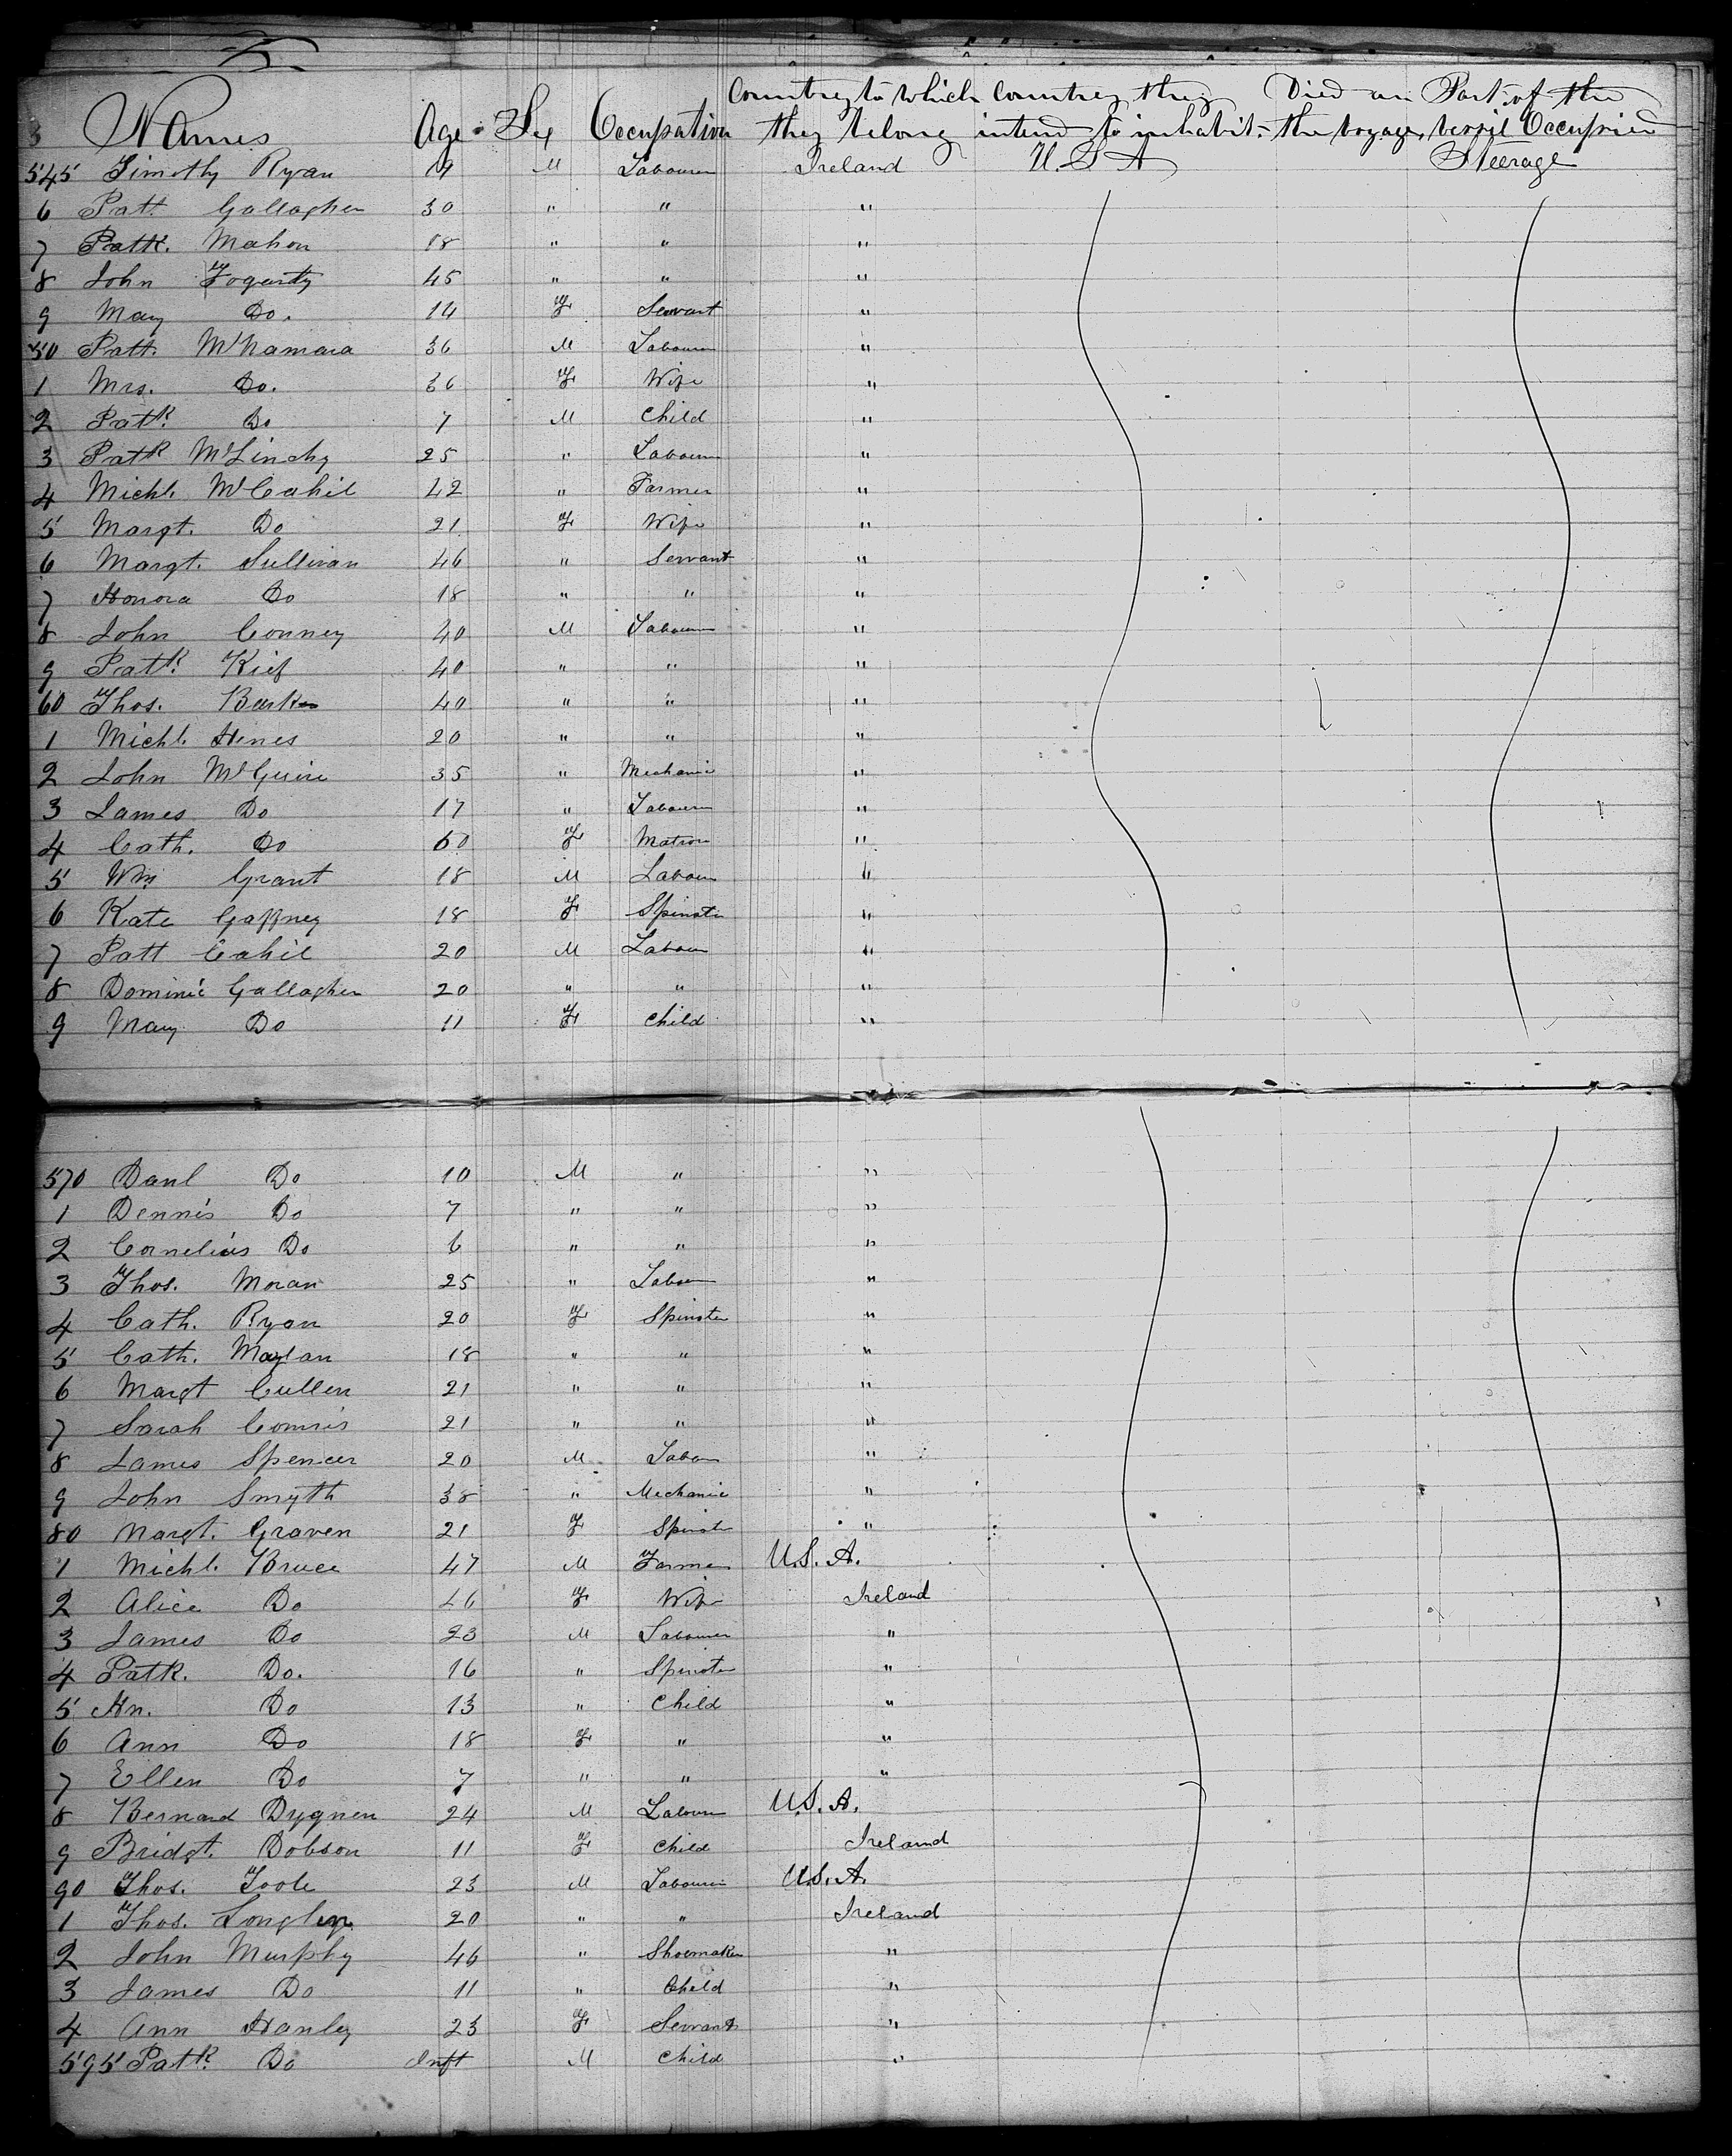 Country to which Country they Died on Part of the
Names Age Sex Occupation they belong intend to inhabit the voyage vessil Occupied
545 Timothy Ryan M Labourer Ireland U.S.A Steerage
6 Patt Gallagher 30 " " "
7 Patk. Mahon 18 " " "
8 John Fogarty 45 " " "
9 Mary Do. 14 F Servant "
50 Patt. McNamara 36 M Labourer "
1 Mrs. Do. 36 F Wife "
2 Patk Do 7 M Child "
3 Patk McLinchy 25 " Labourer "
4 Michl. McCahil 42 " Farmer "
5 Margt. Do 21 F Wife "
6 Margt. Sullivan 46 " Servant "
7 Honora Do 18 " " "
8 John Conney 40 M Labourer "
9 Patk Kief 40 " " "
60 Thos. Burke 40 " " "
1 Michl. Henes 20 " " "
2 John McGuire 35 " Mechanic "
3 James Do 17 " Labourer "
4 Cath. Do 60 F Matron "
5 Wm Grant 18 M Labour "
6 Kate Gaffney 18 F Spinster "
7 Patt Cahil 20 M Labour "
8 Dominic Gallagher 20 " " "
9 Mary Do 11 F Child "
570 Danl Do 10 M " "
1 Dennis Do 7 " " "
2 Cornelius Do 6 " " "
3 Thos. Moran 25 " Labour "
4 Cath. Ryan 20 F Spinster "
5 Cath. 18 " " "
6 Margt Cullen 21 " " "
7 Sarah 21 " " "
8 James Spencer 20 M Labour "
9 John Smyth 38 " Mechanic "
80 Margt. Graven 21 F Spinster "
1 Michl. Bruce 47 M Farmer U.S. A.
2 Alice Do 46 F Wife Ireland
3 James Do 23 M Labourer "
4 Patk. Do. 16 " Spinster "
5 Hn. Do 13 " Child "
6 Ann Do 18 F " "
7 Ellen Do 7 " " "
8 Bernard Dygnen 24 M Labourer U.S. A.
9 Bridgt. Dobson 11 F Child Ireland
90 Thos. Toole 23 M Labourer U.S. A.
1 Thos. 20 " " Ireland
2 John Murphy 46 " Shoemaker "
3 James Do 11 " Child "
4 Ann Hanley 23 F Servant "
595 Patk Do Inft M Child "